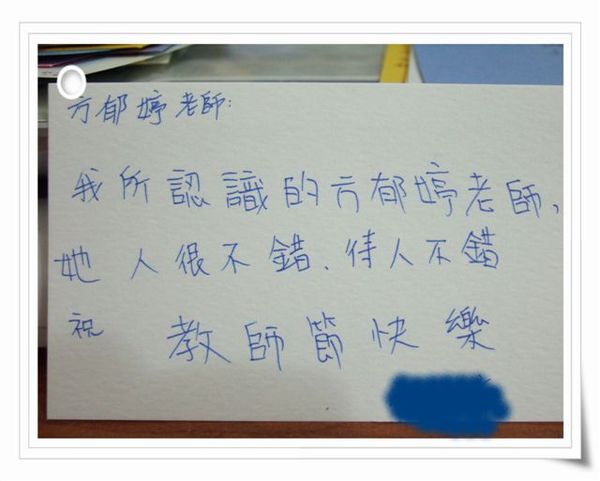 方郁婷老師:
我所認識的方郁婷老師,
她人很不錯、待人不錯
祝 教師節快樂